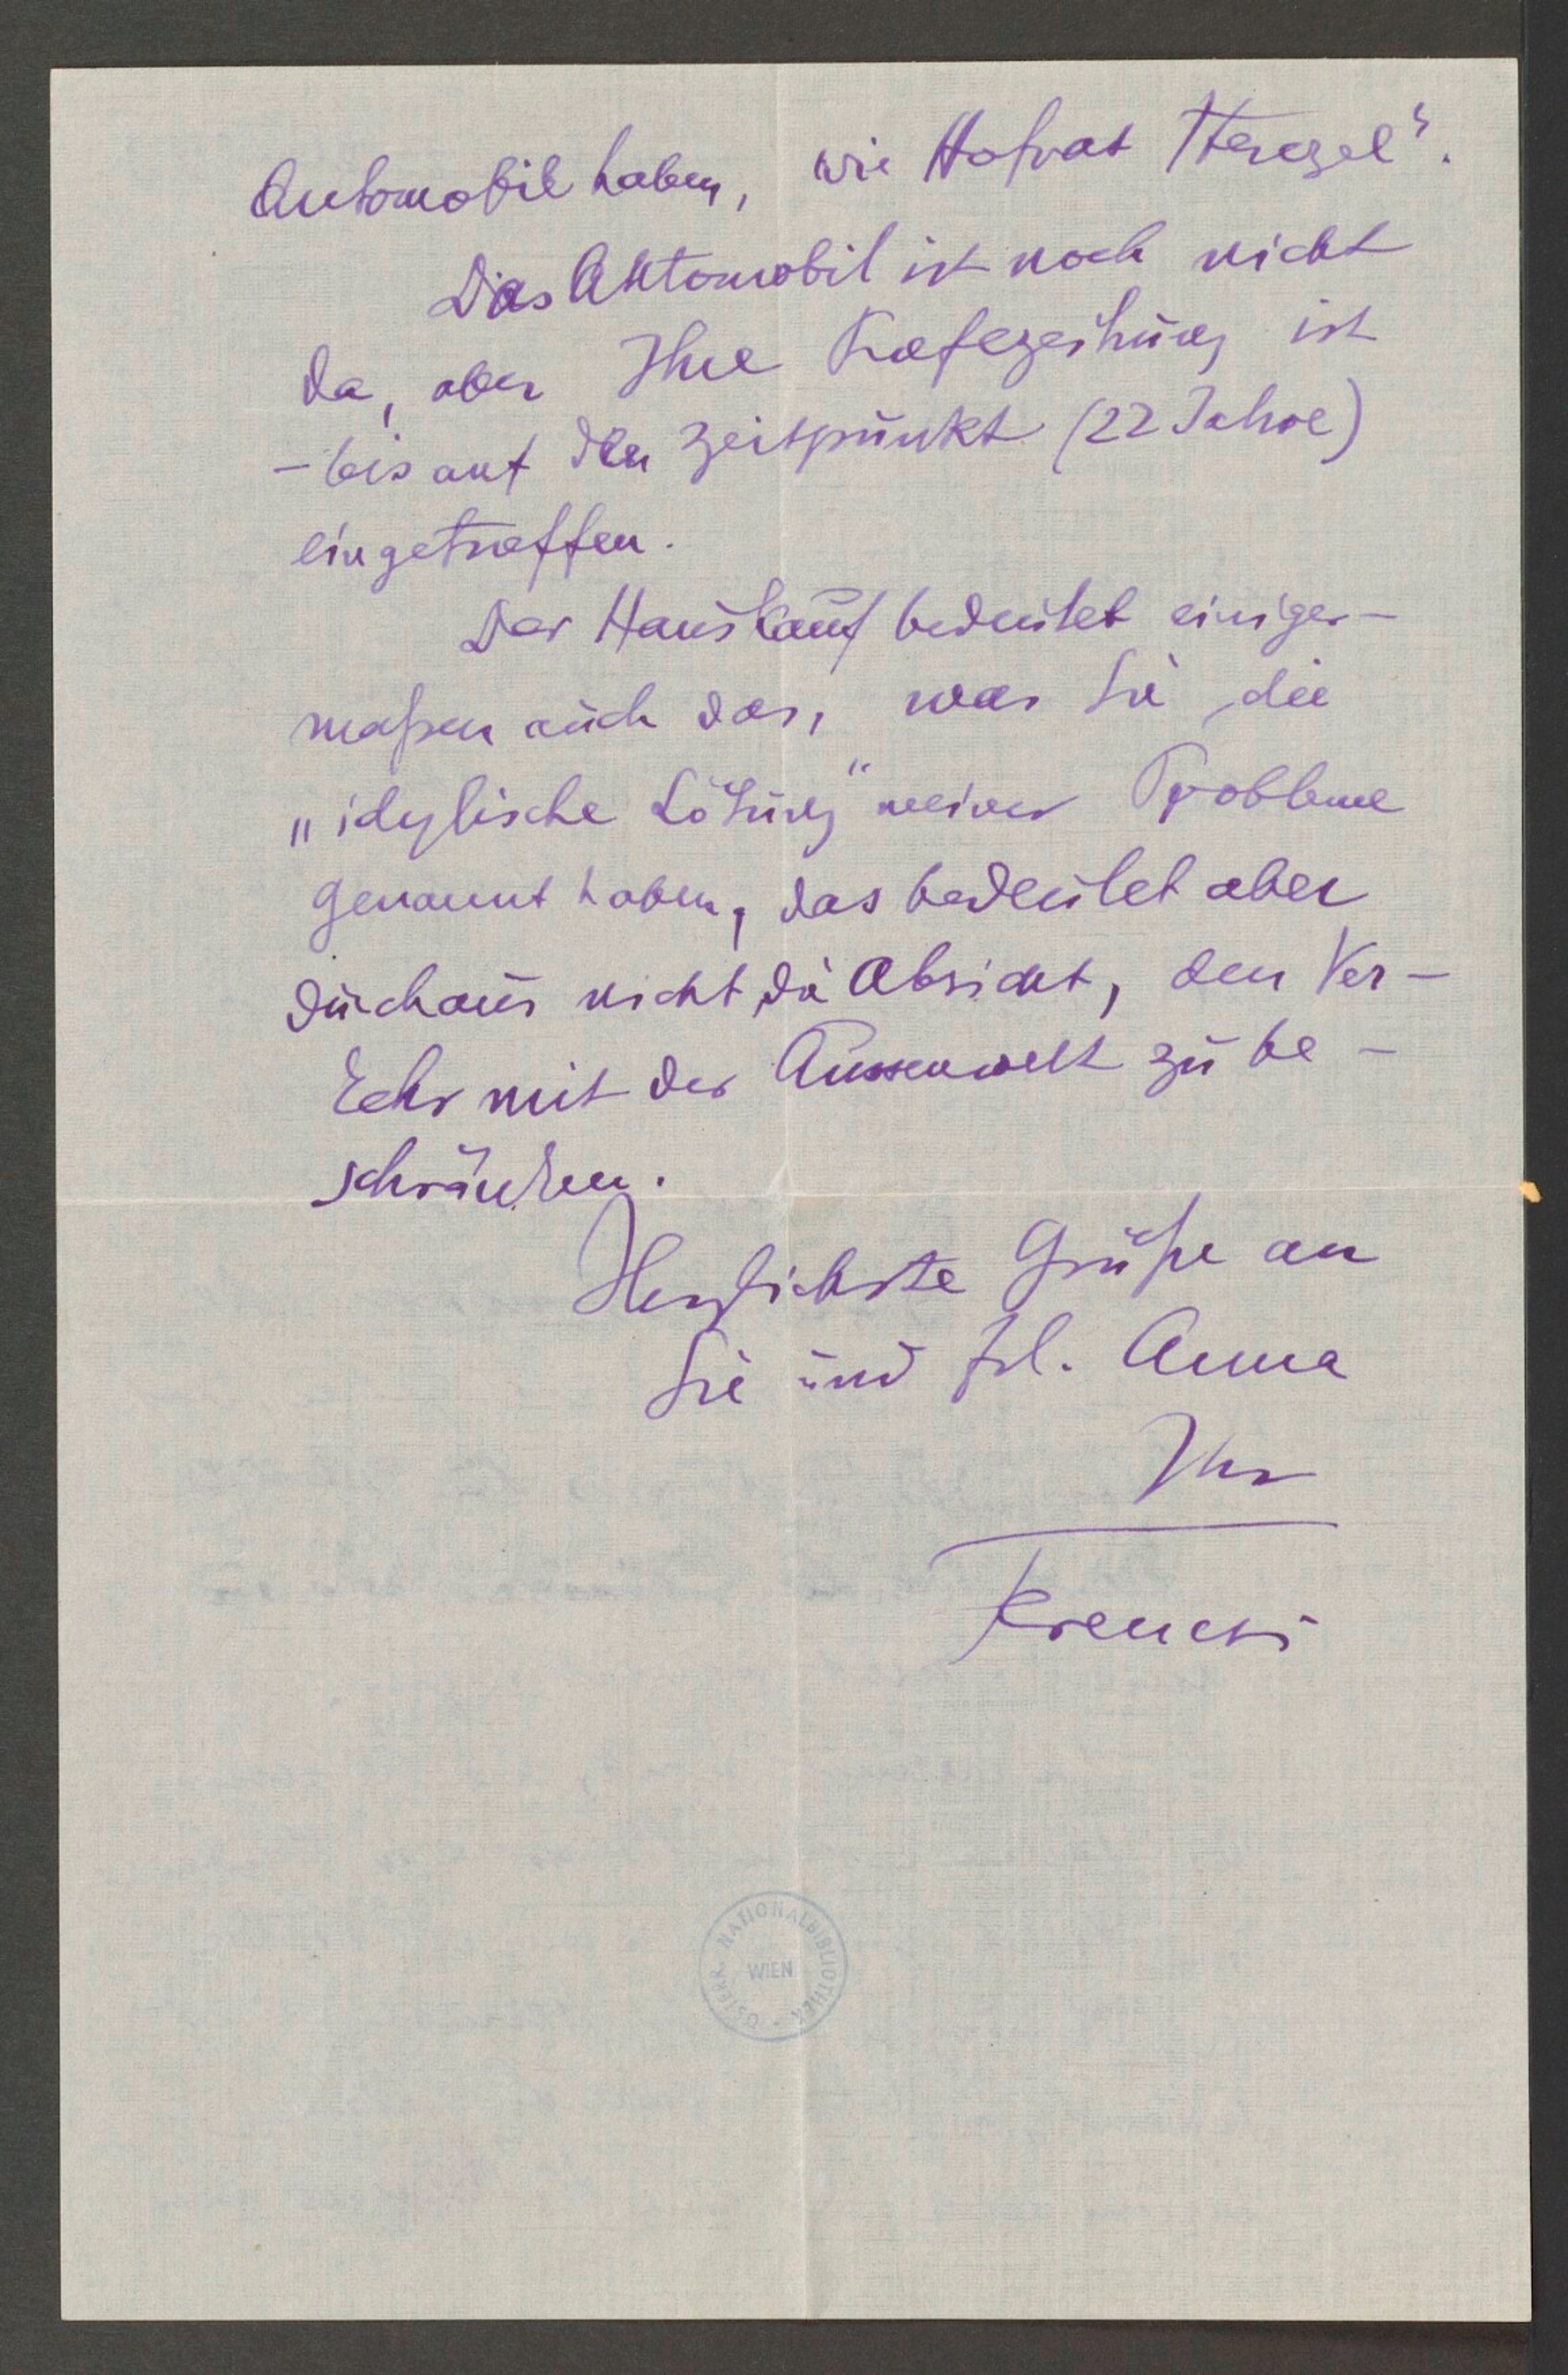 Automobil haben, wie Hofrat Herczel".
Das Automobil ist noch nicht
da, aber Ihre Profezeihung ist
– bis auf den Zeitpunkt (22 Jahre)
eingetroffen.
Der Hauskauf bedeutet einiger-
maßen auch das, was Sie die
„idylische Lösung" meiner Probleme
genannt haben, das bedeutet aber
durchaus nicht die Absicht, den Ver-
kehr mit der Aussenwelt zu be-
schränken.
Herzlichste Grüße an
Sie und Frl. Anna
Ihr
Ferenczi
ÖSTERR. NATIONALBIBLIOTHEK
WIEN